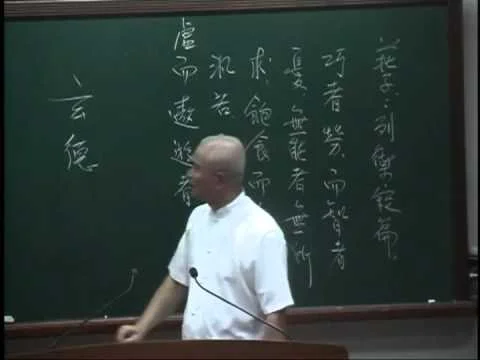 莊子:列禦寇篇
巧者勞而智者
憂,無能者無所
求,飽食而
汎若
虛而遨遊者
玄德